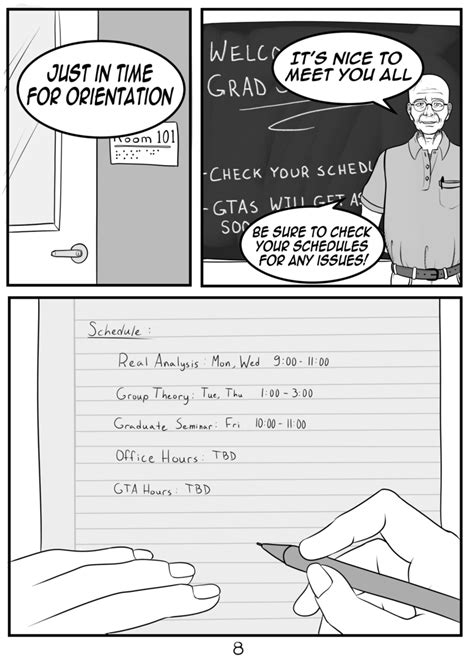 JUST IN TIME
FOR ORIENTATION
Room 101
WELCO
GRAD
IT'S NICE TO
MEET YOU ALL
-CHECK YOUR SCHEDU
-GTAS WILL GET AS
SOO
BE SURE TO CHECK
YOUR SCHEDULES
FOR ANY ISSUES!
Schedule:
Real Analysis: Mon, Wed 9:00-11:00
Group Theory: Tue, Thu 1:00-3:00
Graduate Seminar: Fri 10:00-11:00
Office Hours: TBD
GTA Hours: TBD
8